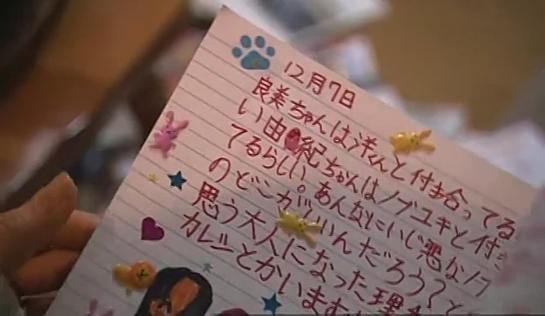 12月7日
良美ちゃんは洋くんと付き合ってる
い由紀ちゃんはノブユキと付き
てるらしい。あんなにいじ悪なノブ
のどこがいいんだろう?と
思う大人になった理
カレシとかいま